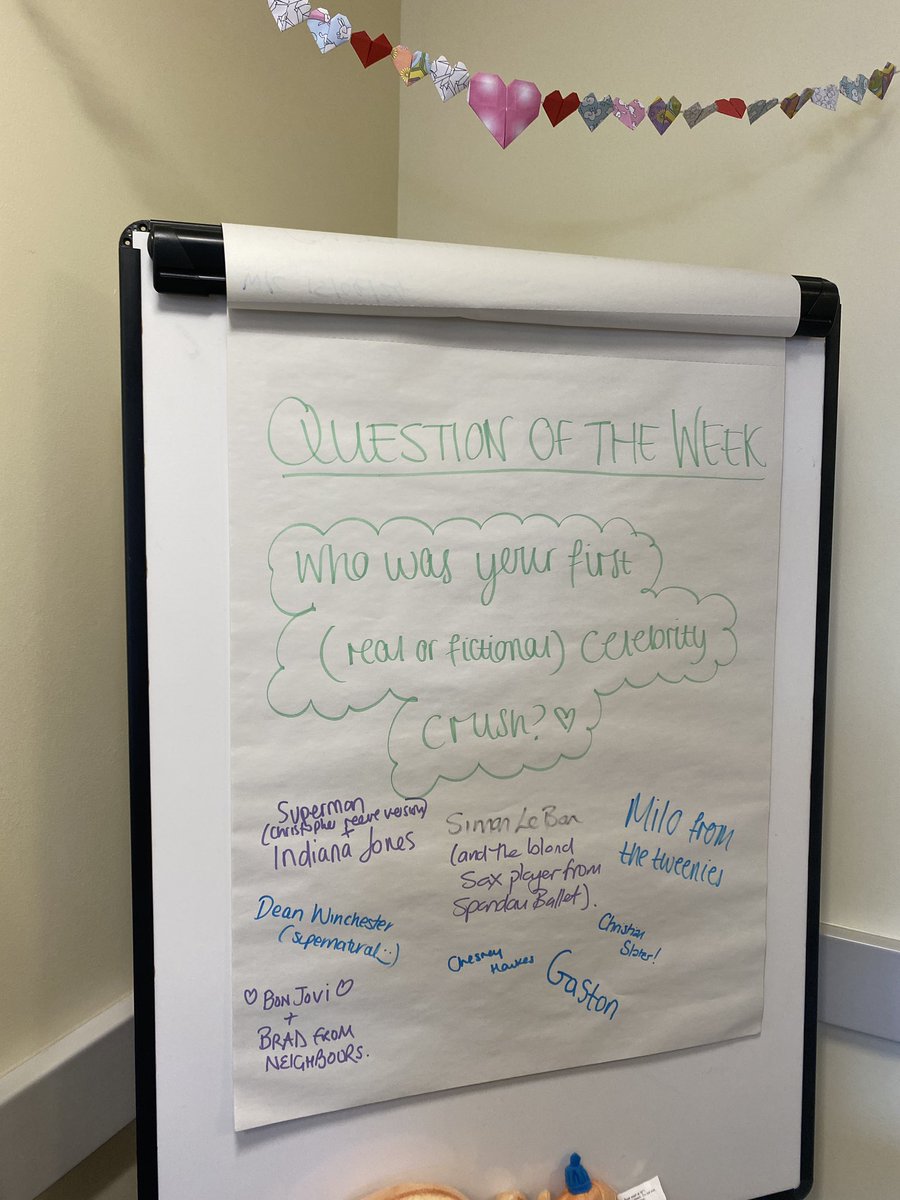 QUESTION OF THE WEEK
Who was your first
(real or fictional) celebrity
crush? ♡
Superman
(Christopher reeve version)
+
Indiana Jones
Simon Le Bon
(and the blond
Sax player from
Spandau Ballet).
Milo from
the tweenies
Dean Winchester
(supernatural :))
Christian
Slater!
Chesney
Hawkes
Gaston
♡ BON JOVI ♡
+
BRAD FROM
NEIGHBOURS.